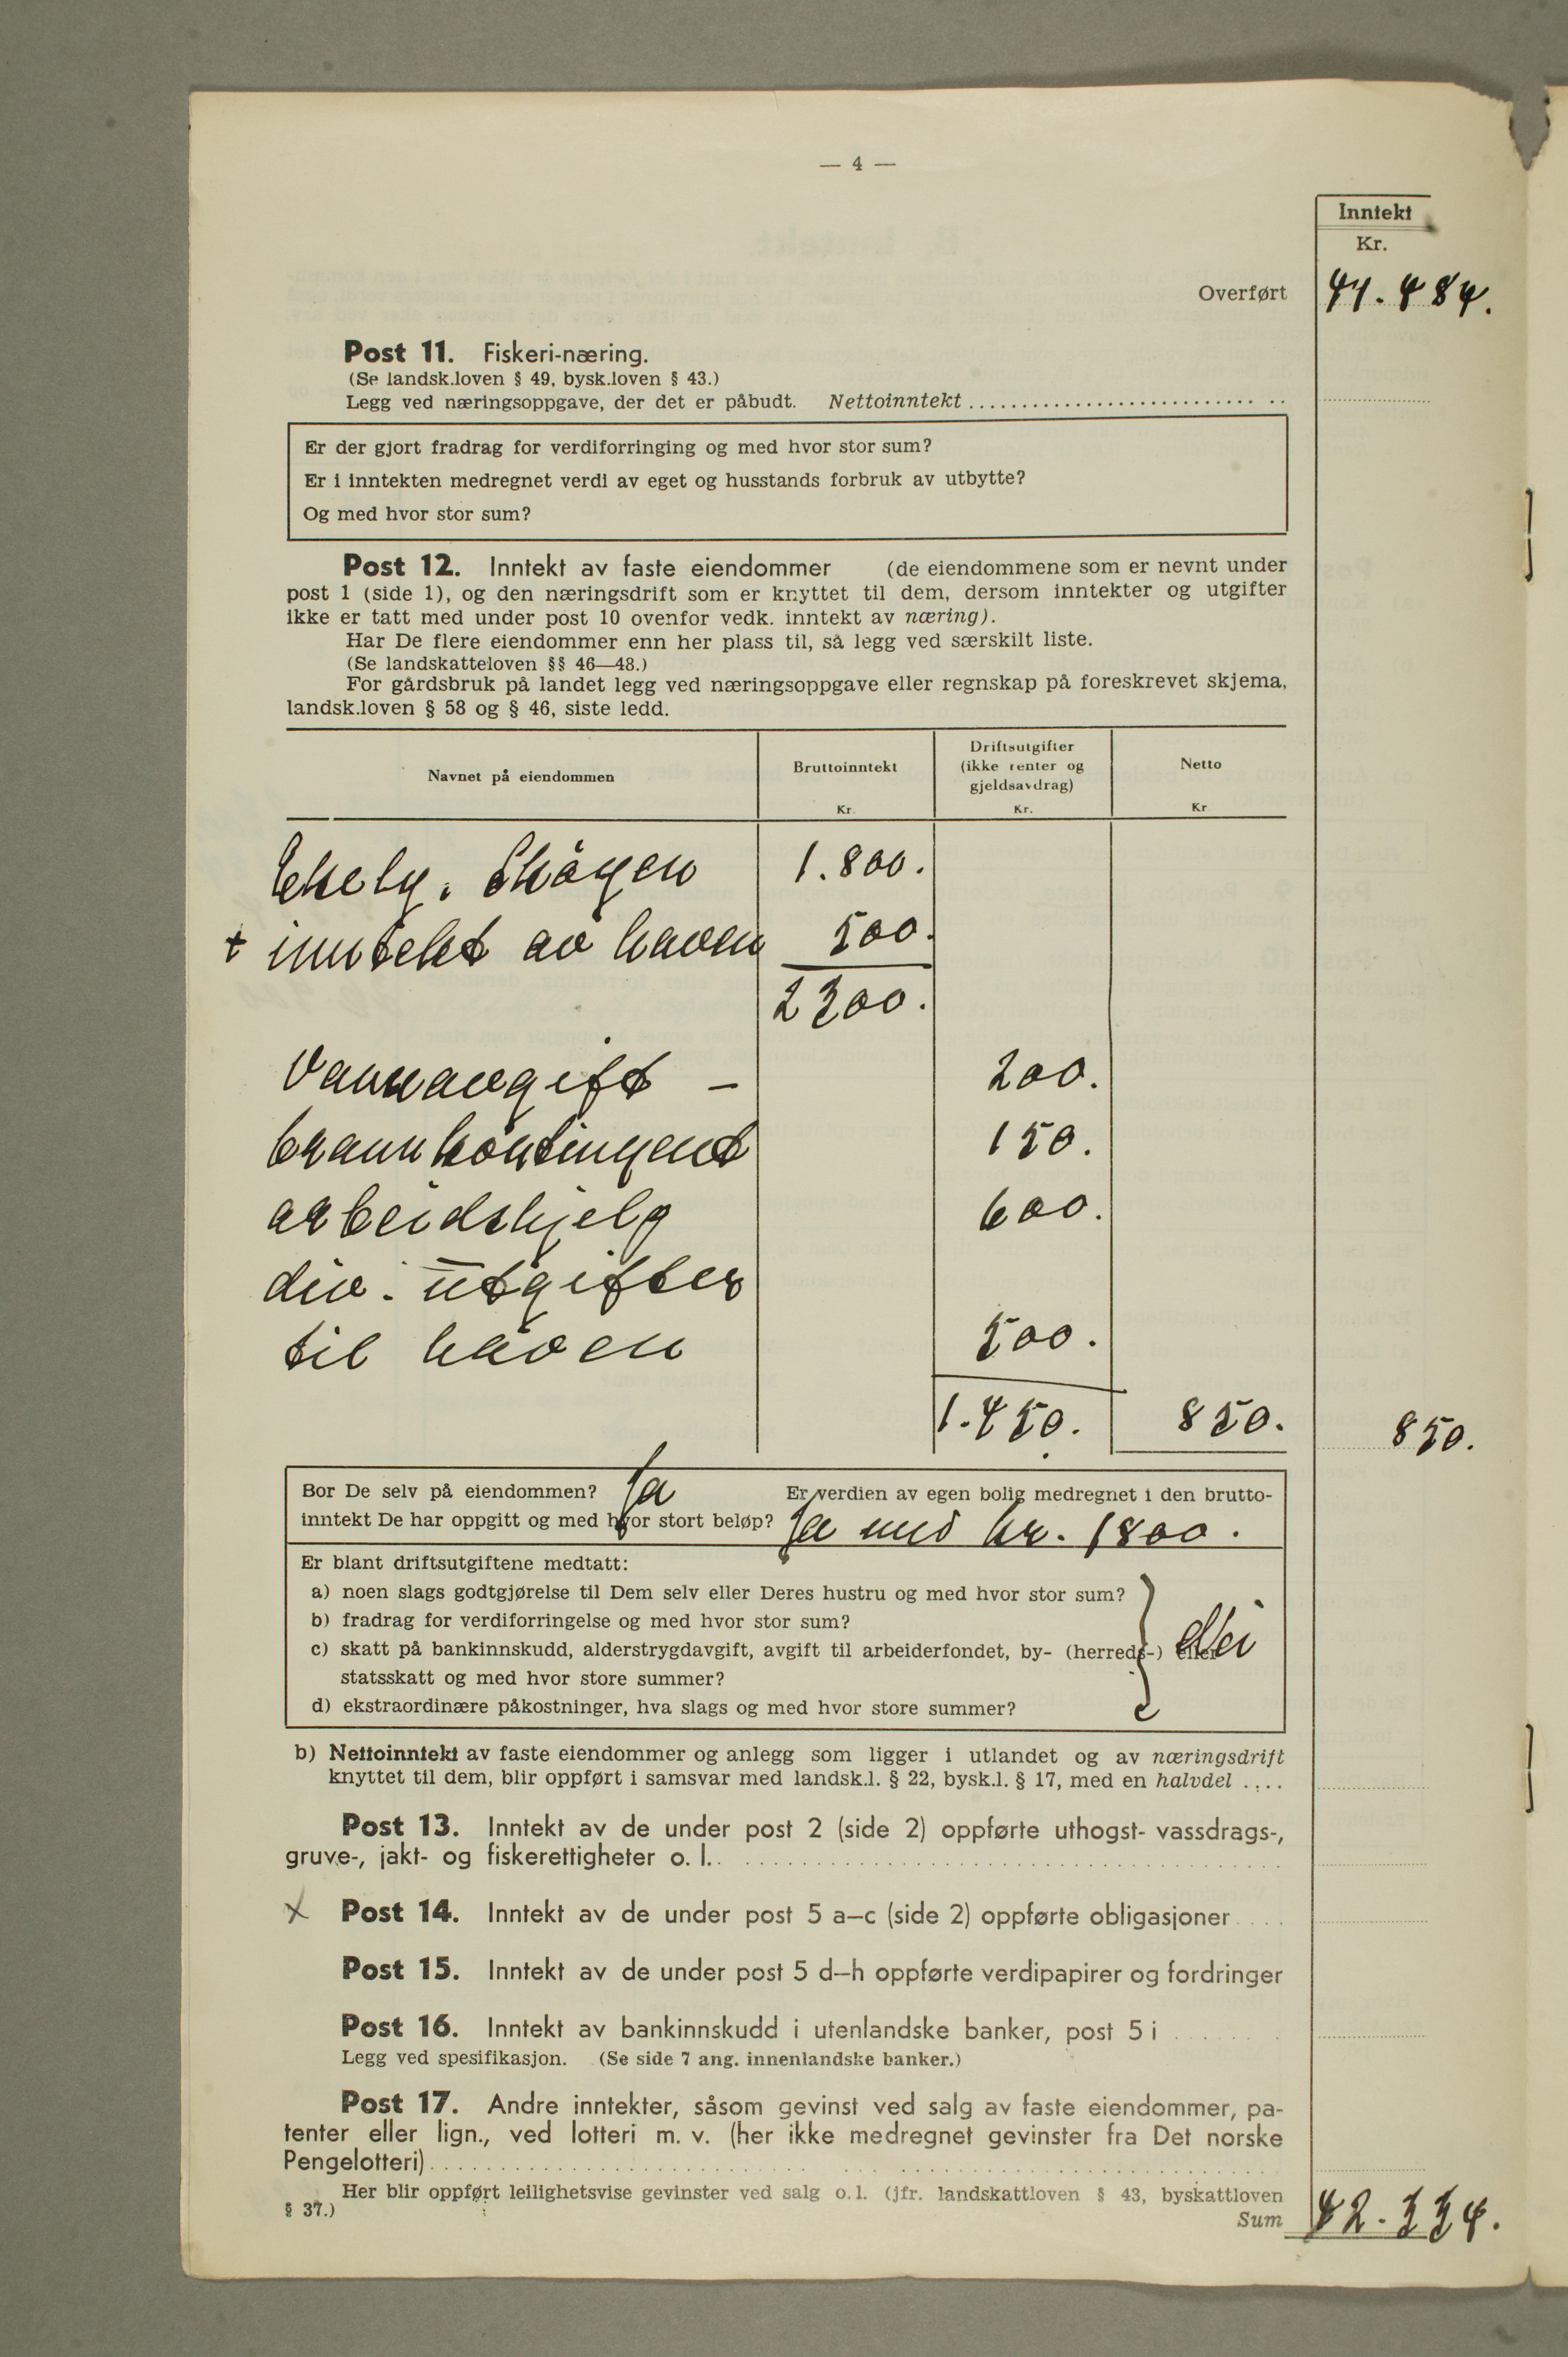 — 4 —
Inntekt
Kr.
Overført 41.484.
Post 11. Fiskeri-næring.
(Se landsk.loven § 49, bysk.loven § 43.)
Legg ved næringsoppgave, der det er påbudt. Nettoinntekt
Er der gjort fradrag for verdiforringing og med hvor stor sum?
Er i inntekten medregnet verdi av eget og husstands forbruk av utbytte?
Og med hvor stor sum?
Post 12. Inntekt av faste eiendommer (de eiendommene som er nevnt under
post 1 (side 1), og den næringsdrift som er knyttet til dem, dersom inntekter og utgifter
ikke er tatt med under post 10 ovenfor vedk. inntekt av næring).
Har De flere eiendommer enn her plass til, så legg ved særskilt liste.
(Se landskatteloven §§ 46—48.)
For gårdsbruk på landet legg ved næringsoppgave eller regnskap på foreskrevet skjema,
landsk.loven § 58 og § 46, siste ledd.
Navnet på eiendommen
Bruttoinntekt
Kr.
Driftsutgifter
(ikke renter og
gjeldsavdrag)
Kr.
Netto
Kr
Ekely. Skøyen 1.800.
+ inntekt av haven 500.
2300.
Vannavgift — 200.
brannkontingent 150.
arbeidshjelp 600.
div. utgifter
til haven 500.
1.450. 850. 850.
Bor De selv på eiendommen? Ja Er verdien av egen bolig medregnet i den brutto-
inntekt De har oppgitt og med hvor stort beløp? Ja med kr. 1800.
Er blant driftsutgiftene medtatt:
a) noen slags godtgjørelse til Dem selv eller Deres hustru og med hvor stor sum?
b) fradrag for verdiforringelse og med hvor stor sum?
c) skatt på bankinnskudd, alderstrygdavgift, avgift til arbeiderfondet, by- (herreds-) eller Nei
statsskatt og med hvor store summer?
d) ekstraordinære påkostninger, hva slags og med hvor store summer?
b) Nettoinntekt av faste eiendommer og anlegg som ligger i utlandet og av næringsdrift
knyttet til dem, blir oppført i samsvar med landsk.l. § 22, bysk.l. § 17, med en halvdel ....
Post 13. Inntekt av de under post 2 (side 2) oppførte uthogst- vassdrags-,
gruve-, jakt- og fiskerettigheter o. l.
x Post 14. Inntekt av de under post 5 a—c (side 2) oppførte obligasjoner
Post 15. Inntekt av de under post 5 d—h oppførte verdipapirer og fordringer
Post 16. Inntekt av bankinnskudd i utenlandske banker, post 5 i
Legg ved spesifikasjon. (Se side 7 ang. innenlandske banker.)
Post 17. Andre inntekter, såsom gevinst ved salg av faste eiendommer, pa-
tenter eller lign., ved lotteri m. v. (her ikke medregnet gevinster fra Det norske
Pengelotteri)
Her blir oppført leilighetsvise gevinster ved salg o. l. (jfr. landskattloven § 43, byskattloven
§ 37.)
Sum 42.334.